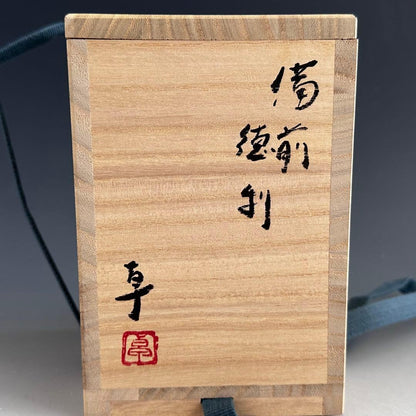 備前
徳利
卓